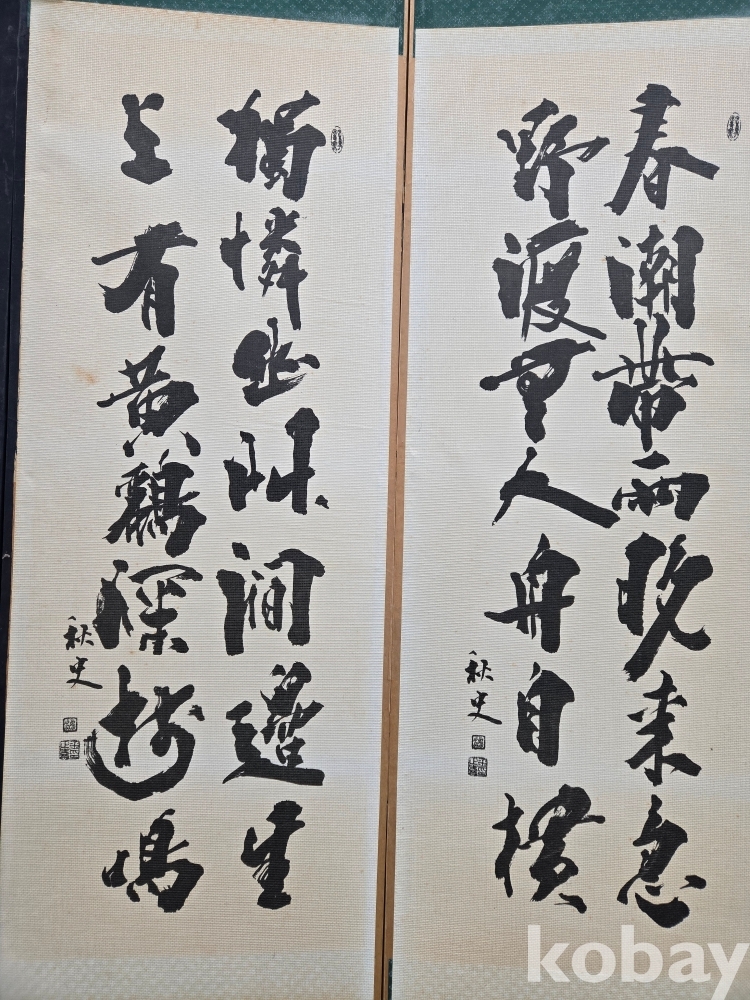 春潮帶雨晚來急
野渡無人舟自橫
秋史
獨憐幽艸澗邊生
上有黃鸝深樹鳴
秋史
kobay